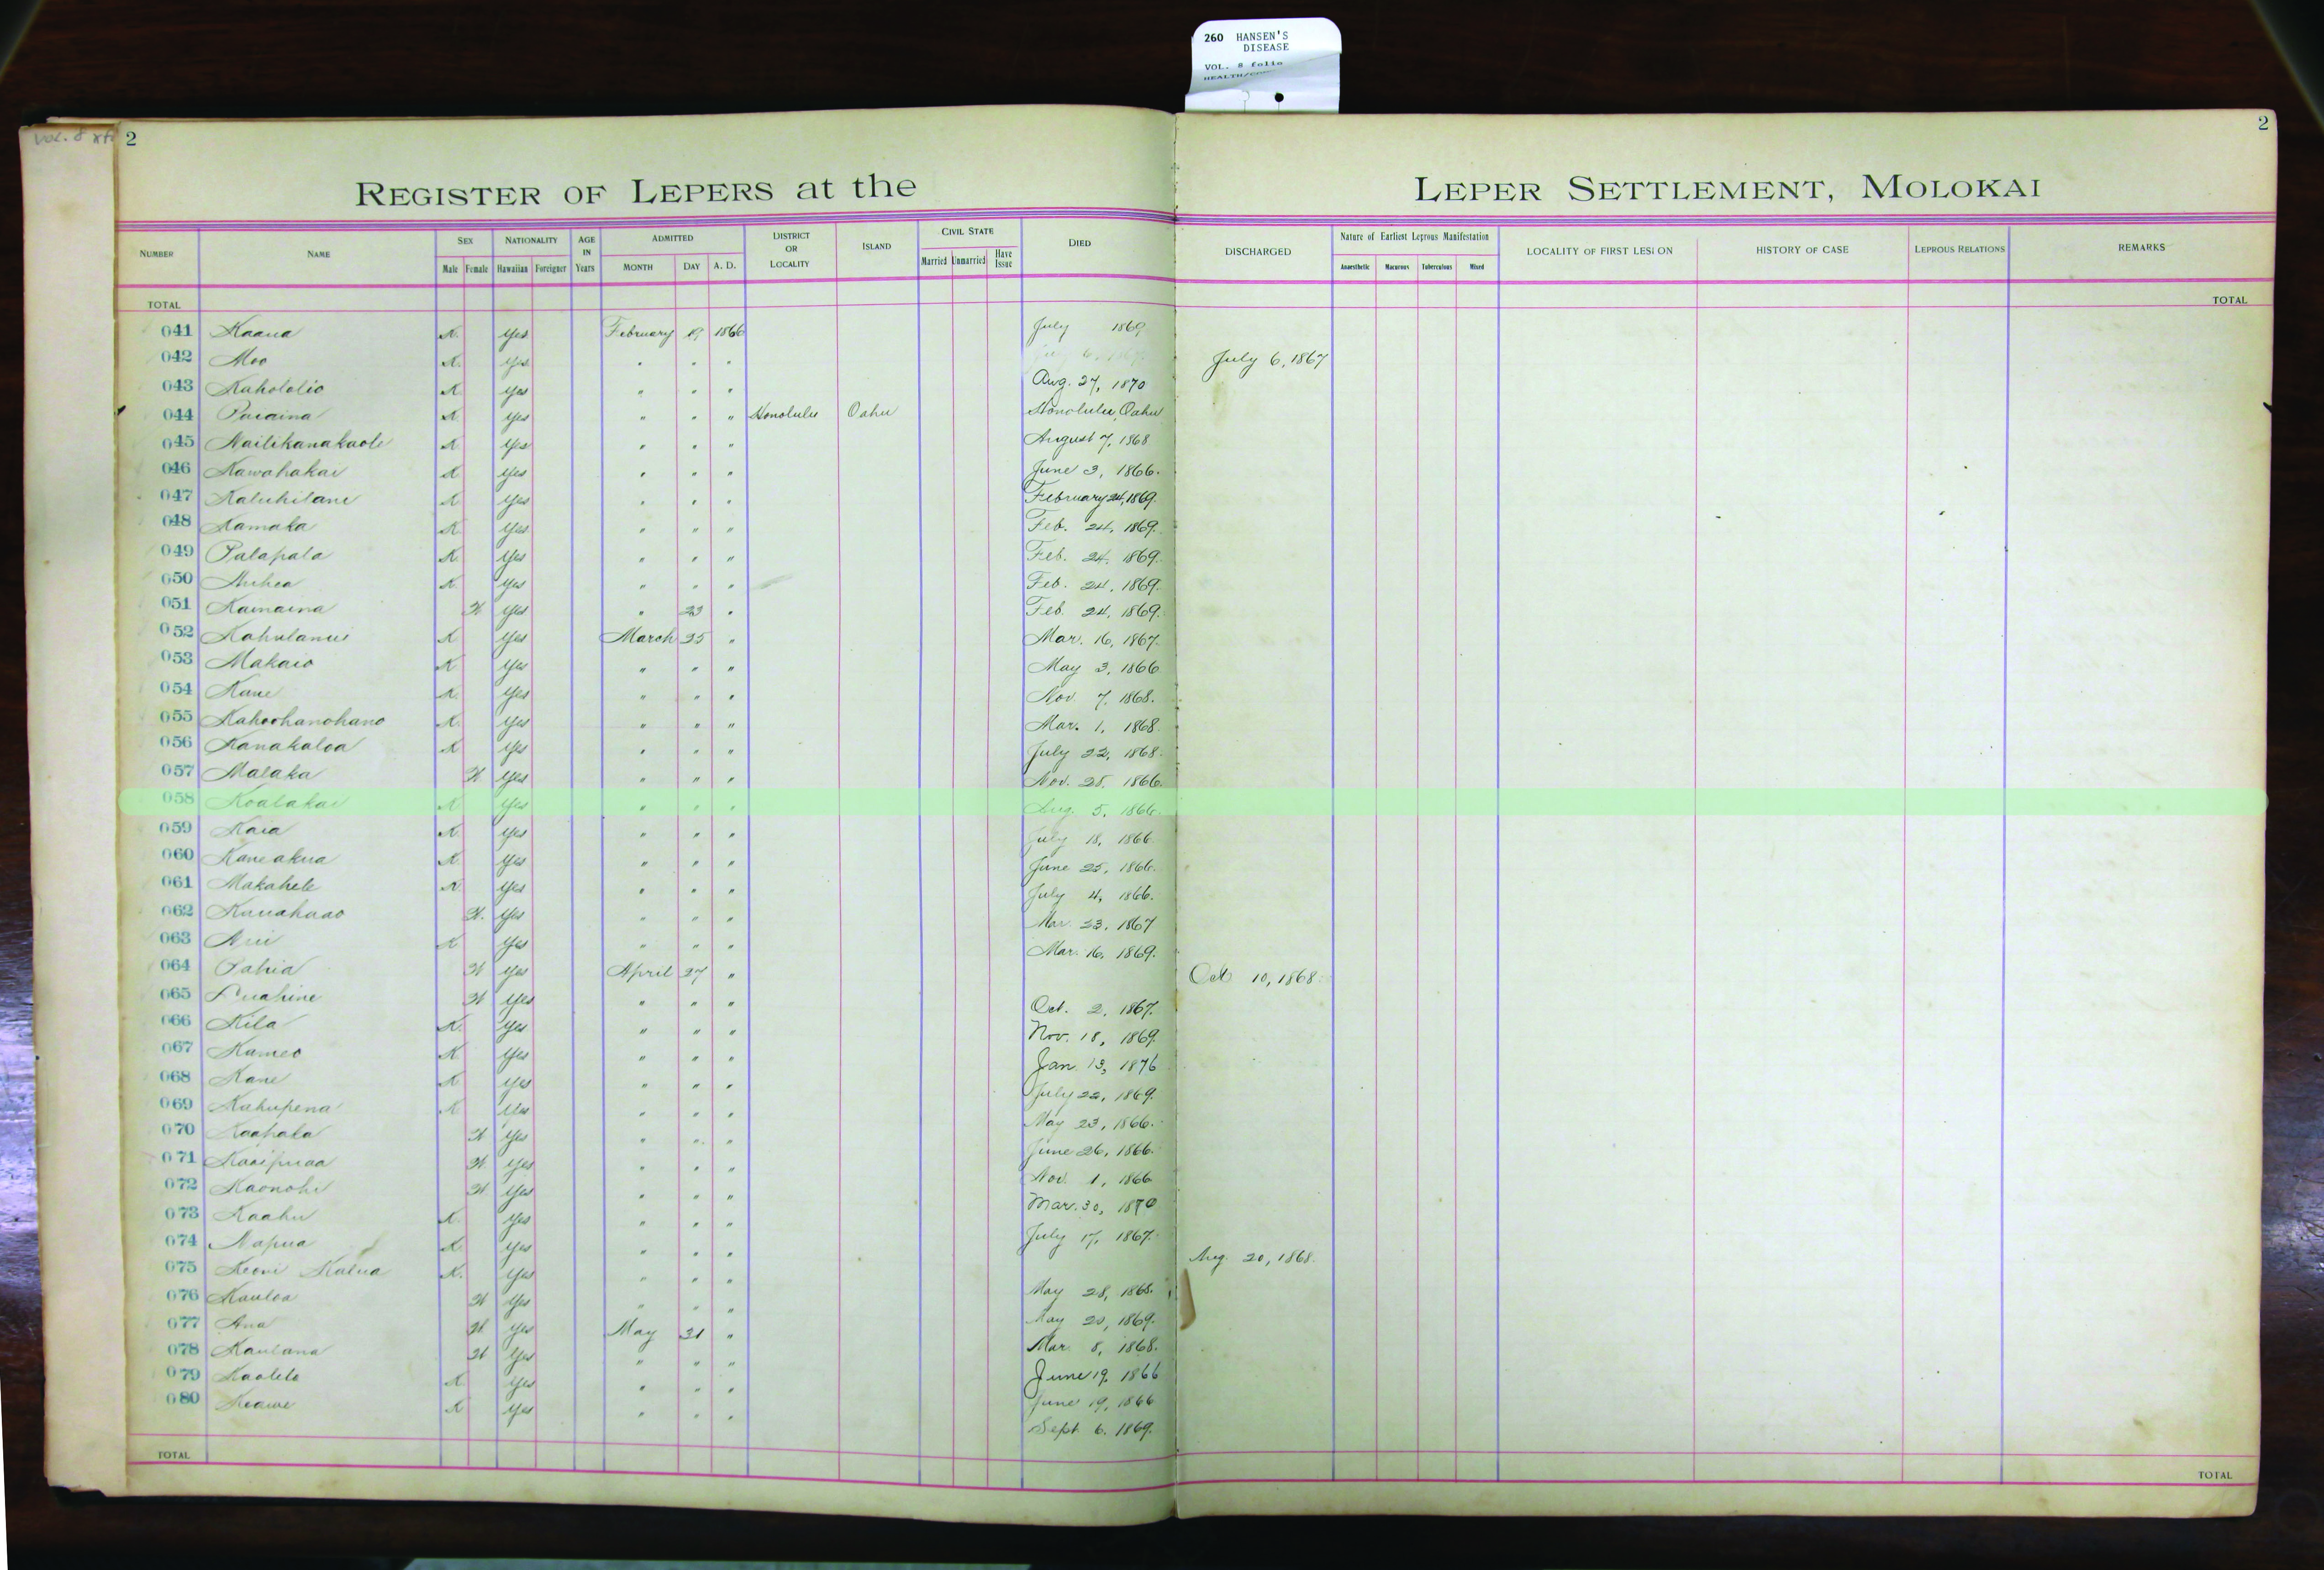 260 HANSEN'S
DISEASE
VOL. 8 folio
Vol. 8
2
2
REGISTER OF LEPERS at the LEPER SETTLEMENT, MOLOKAI
NUMBER NAME SEX NATIONALITY AGE IN Years ADMITTED DISTRICT OR LOCALITY ISLAND CIVIL STATE DIED DISCHARGED Nature of Earliest Leprous Manifestation LOCALITY OF FIRST LESION HISTORY OF CASE LEPROUS RELATIONS REMARKS
Male Female Hawaiian Foreigner MONTH DAY A. D. Married Unmarried Have Issue Anaesthetic Macurous Tuberculous Mixed
TOTAL TOTAL
041 Kaaua K. Yes February 19 1866 July 1869
042 Moo K. Yes " " " July 6, 1867
043 Kahololio K Yes " " " Aug. 27, 1870
044 K Yes " " " Honolulu Oahu Honolulu, Oahu
045 Nailikanakaole K Yes " " " August 7, 1868
046 Kawahakai K Yes " " " June 3, 1866.
047 Kaluhilani K Yes " " " February 24, 1869.
048 Kamaka K Yes " " " Feb. 24, 1869.
049 Palapala K. Yes " " " Feb. 24, 1869.
050 K. Yes " " " Feb. 24, 1869.
051 Kamaina W. Yes " 23 " Feb. 24, 1869.
052 Kahulanui K Yes March 25 " Mar. 16, 1867.
053 Makaio K Yes " " " May 3, 1866
054 Kane K. Yes " " " Nov. 7, 1868.
055 Kahoohanohano K. Yes " " " Mar. 1, 1868.
056 Kanakaloa K Yes " " " July 22, 1868.
057 Malaka W Yes " " " Nov. 28, 1866.
058 Koalakai K Yes " " " Aug. 5, 1866.
059 Kaia K. Yes " " " July 18, 1866.
060 Kaneakua K. Yes " " " June 25, 1866.
061 Makahele K. Yes " " " July 4, 1866.
062 Kauahaao W. Yes " " " Mar. 23, 1867
063 K Yes " " " Mar. 16, 1869.
064 Pahia W Yes April 27 " Oct 10, 1868.
065 Luahine W Yes " " " Oct. 2, 1867.
066 Kila K. Yes " " " Nov. 18, 1869.
067 Kameo K Yes " " " Jan. 13, 1876
068 Kane K Yes " " " July 22, 1869.
069 Kahupena K Yes " " " May 23, 1866.
070 Kaahala W Yes " " " June 26, 1866.
071 Kaaipuaa W. Yes " " " Nov. 1, 1866
072 Kaonohi W Yes " " " Mar. 30, 1870
073 Kaahu K. Yes " " " July 17, 1867.
074 Napua K Yes " " " Aug. 20, 1868.
075 Keoni Kalua K. Yes " " " May 28, 1868.
076 Kauloa W Yes " " " May 20, 1869.
077 Ana W. Yes May 31 " Mar. 8, 1868.
078 Kaulana W Yes " " " June 19, 1866
079 Kaolelo K Yes " " " June 19, 1866
080 Keawe K Yes " " " Sept 6, 1869.
TOTAL TOTAL